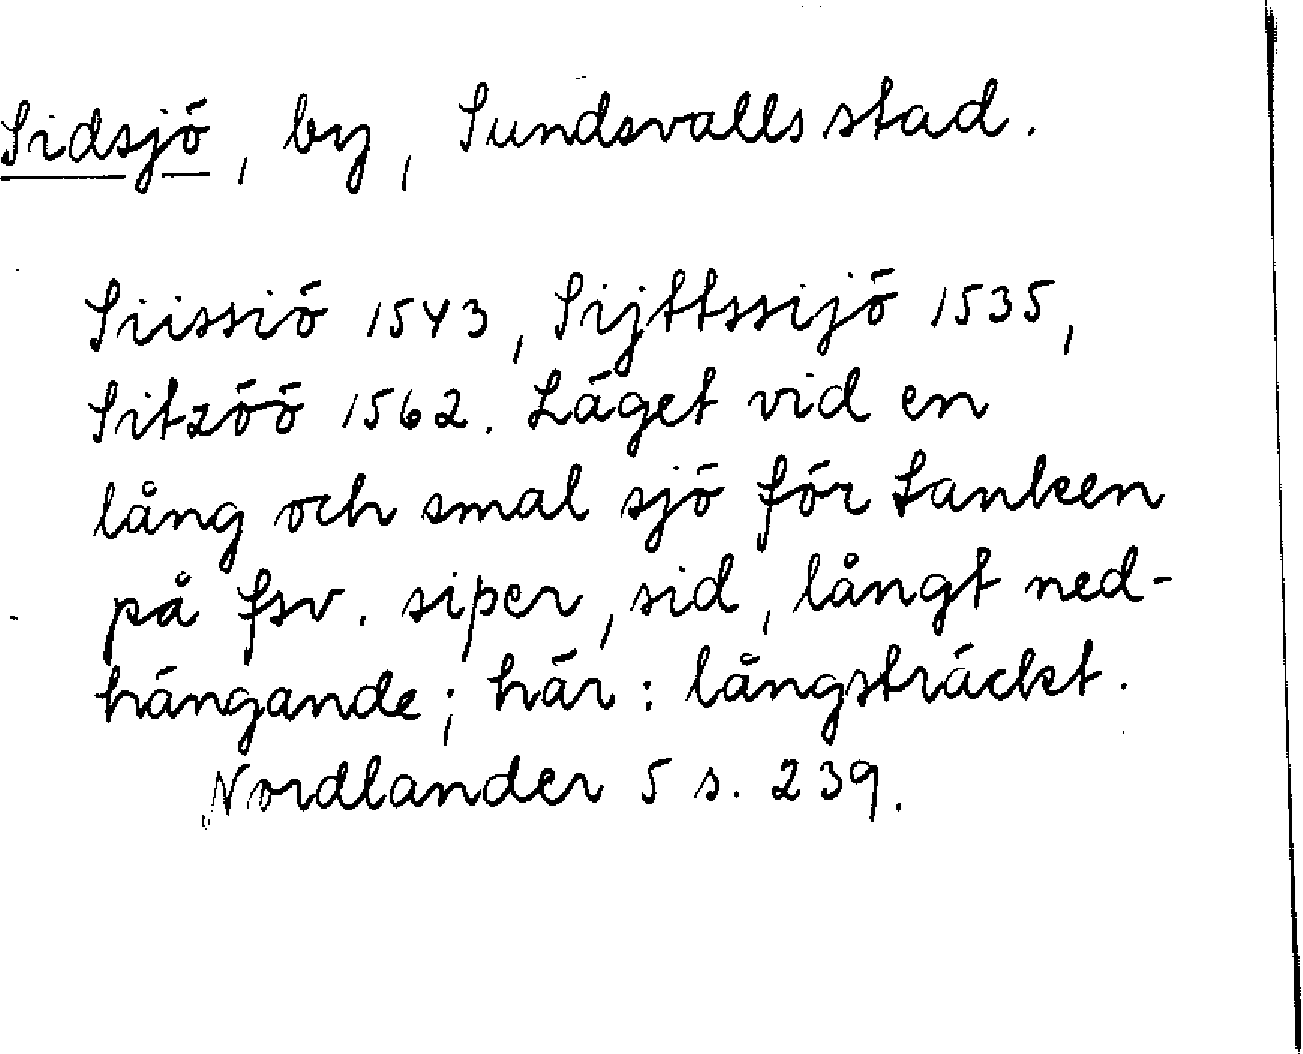 Sidsjö, by, Sundsvalls stad.
Siissiö 1543, Sijttssijö 1535,
Sitzöö 1562. Läget vid en
lång och smal sjö för tanken
på fsv. siþer, sid, långt ned-
hängande; här: långsträckt.
Nordlander 5 s. 239.